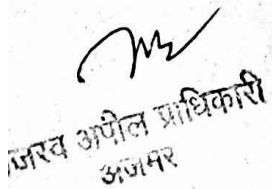 जस्व अपील प्राधिकारी
अजमेर